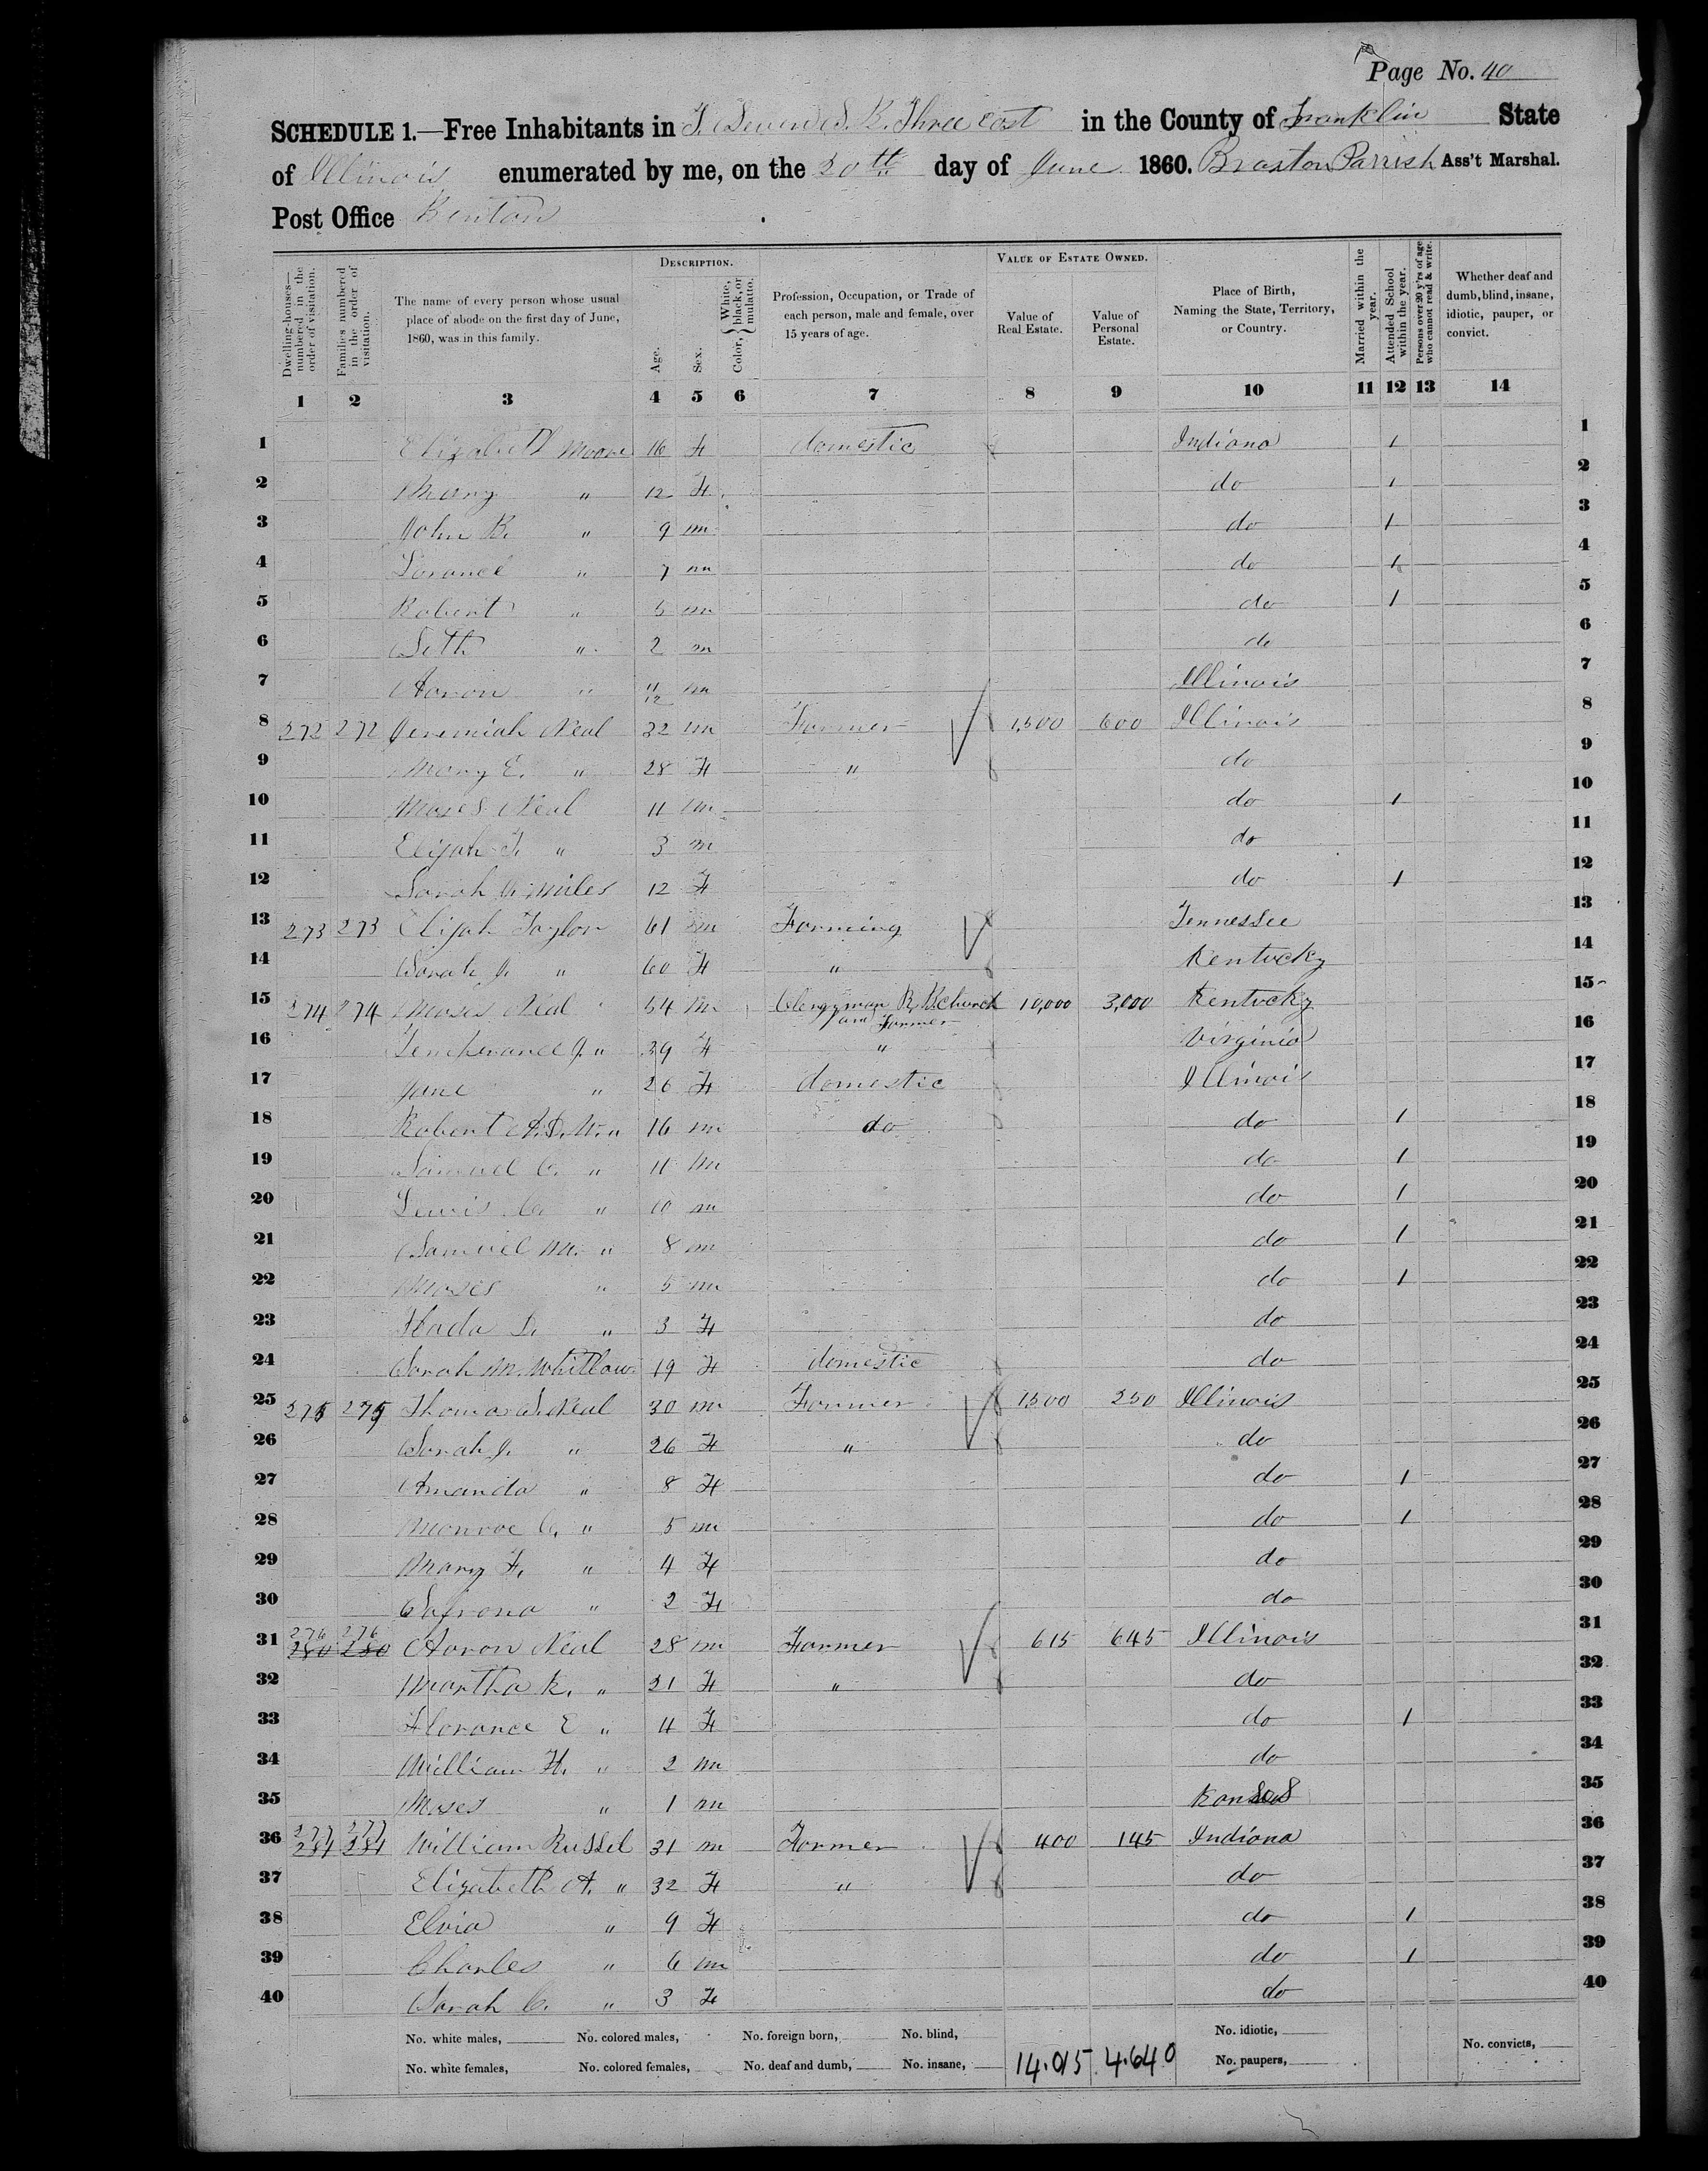 Page No. 40
SCHEDULE 1.—Free Inhabitants in T. Seven S. R. Three east in the County of Franklin State
of Illinois enumerated by me, on the 20th day of June 1860. Braxton Parrish Ass't Marshal.
Post Office Benton
Dwelling-houses—numbered in the order of visitation.
Families numbered in the order of visitation.
The name of every person whose usual place of abode on the first day of June, 1860, was in this family.
DESCRIPTION.
Age.
Sex.
Color, { White, black, or mulatto.
Profession, Occupation, or Trade of each person, male and female, over 15 years of age.
VALUE OF ESTATE OWNED.
Value of Real Estate.
Value of Personal Estate.
Place of Birth, Naming the State, Territory, or Country.
Married within the year.
Attended School within the year.
Persons over 20 y'rs of age who cannot read & write.
Whether deaf and dumb, blind, insane, idiotic, pauper, or convict.
1 2 3 4 5 6 7 8 9 10 11 12 13 14
1 Elizabeth Moore 16 F domestic Indiana 1 1
2 Mary " 12 F do 1 2
3 John B. " 9 m do 1 3
4 " 7 m do 1 4
5 Robert " 5 m do 1 5
6 Seth " 2 m do 6
7 Aaron " 11/12 m Illinois 7
8 272 272 Jeremiah Neal 32 m Farmer 1,500 600 Illinois 8
9 Mary E. " 28 F " do 9
10 Moses Neal 11 m do 1 10
11 Elijah T. " 3 m do 11
12 Sarah Miles 12 F do 1 12
13 273 273 Elijah Taylor 61 m Farming Tennessee 13
14 Sarah J. " 60 F " Kentucky 14
15 274 274 Moses Neal 54 m Clergyman R. B. Church and Farmer 10,000 3,000 Kentucky 15
16 " 39 F " Virginia 16
17 Jane " 26 F domestic Illinois 17
18 Robert A.D.W. " 16 m do do 1 18
19 Samuel C. " 11 m do 1 19
20 Lewis " 10 m do 1 20
21 Samuel M. " 8 m do 1 21
22 Moses " 5 m do 1 22
23 " 3 F do 23
24 Sarah M. Whitlow 19 F domestic do 24
25 275 275 Thomas S. Neal 30 m Farmer 1,500 250 Illinois 25
26 Sarah J. " 26 F " do 26
27 Amanda " 8 F do 1 27
28 Monroe C. " 5 m do 1 28
29 Mary F. " 4 F do 29
30 " 2 F do 30
31 276 276 280 280 Aaron Neal 28 m Farmer 615 645 Illinois 31
32 Martha K. " 21 F " do 32
33 Florance E " 4 F do 1 33
34 William H. " 2 m do 34
35 Moses " 1 m Kansas 35
36 277 277 William Russel 31 m Farmer 400 145 Indiana 36
37 Elizabeth A. " 32 F " do 37
38 Elvia " 9 F do 1 38
39 Charles " 6 m do 1 39
40 Sarah C. " 3 F do 40
No. white males, No. colored males, No. foreign born, No. blind, No. idiotic,
No. white females, No. colored females, No. deaf and dumb, No. insane, 14.015 4.640 No. paupers, No. convicts,